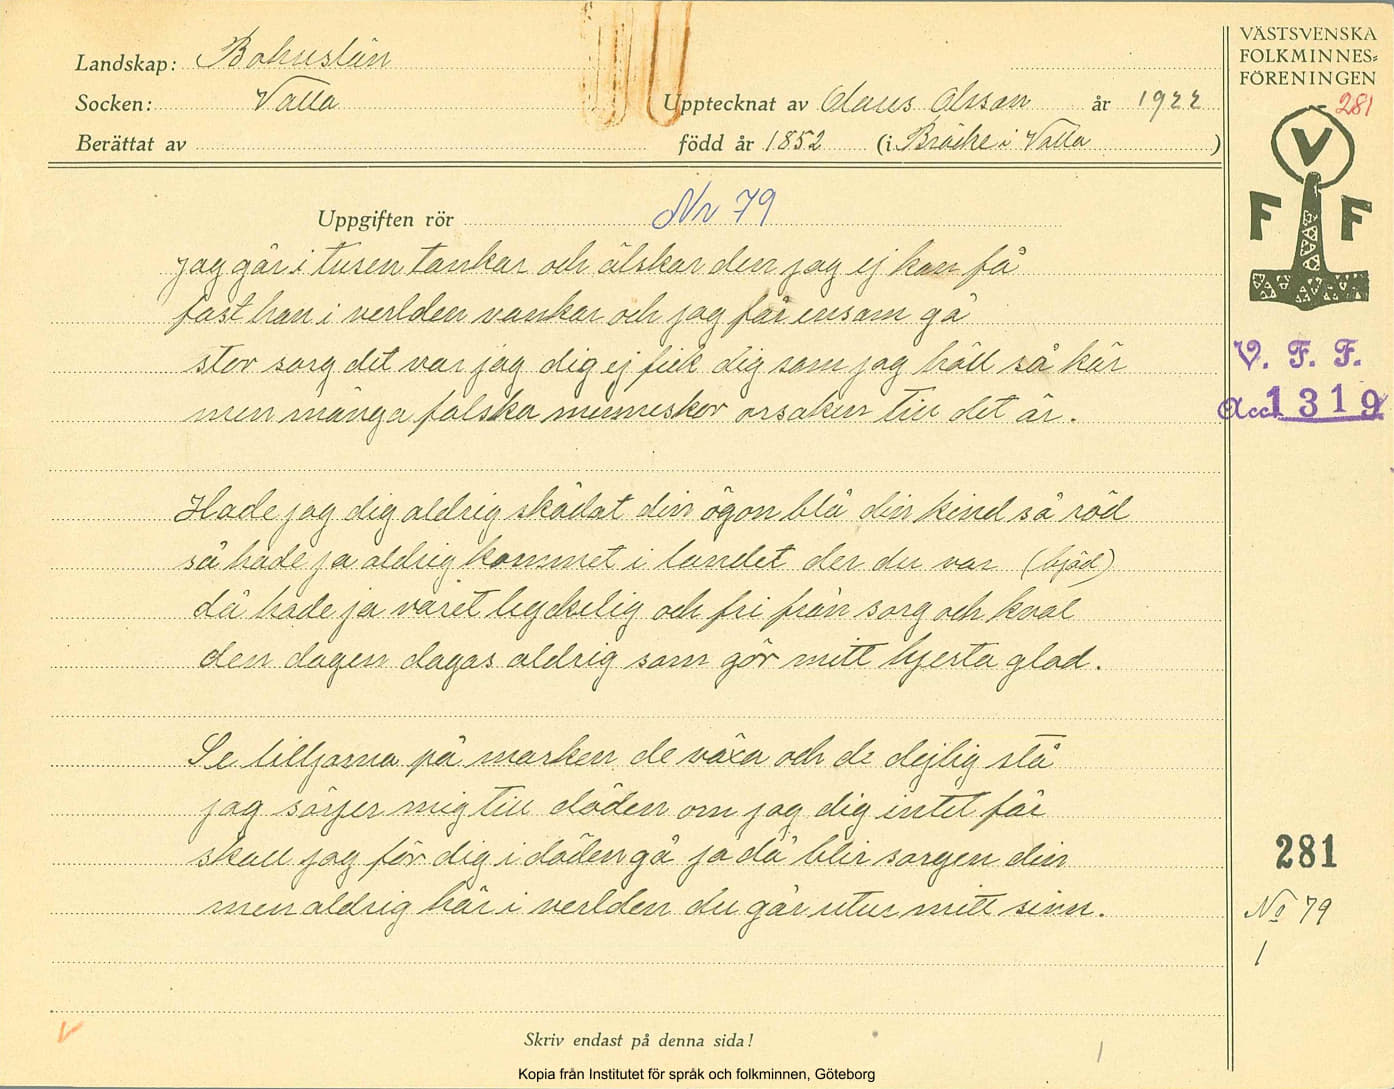 Landskap: Bohuslän
Socken: Valla
Upptecknat av Claus Olsson år 1922
Berättat av
född år 1852 (i Bräcke i Valla)
VÄSTSVENSKA
FOLKMINNES=
FÖRENINGEN
281
V
F F
V. F. F.
Acc. 1319
Uppgiften rör Nr 79
jag går i tusen tankar och älskar den jag ej kan få
fast han i verlden vankar och jag får ensam gå
stor sorg det var jag dig ej fick dig som jag höll så kär
men många falska menneskor orsaken till det är.
Hade jag dig aldrig skådat din ögon blå din kind så röd
så hade ja aldrig kommet i landet der du var (bjöd)
då hade ja varet lyckelig och fri från sorg och kval
den dagen dagas aldrig som gör mitt hjerta glad.
Se lilljorna på marken de växa och de dejlig stå
jag sörjer mig till döden om jag dig intet får
skall jag för dig i döden gå ja då blir sorgen din
men aldrig här i verlden du går utur mitt sinn.
281
No 79
1
Skriv endast på denna sida!
Kopia från Institutet för språk och folkminnen, Göteborg